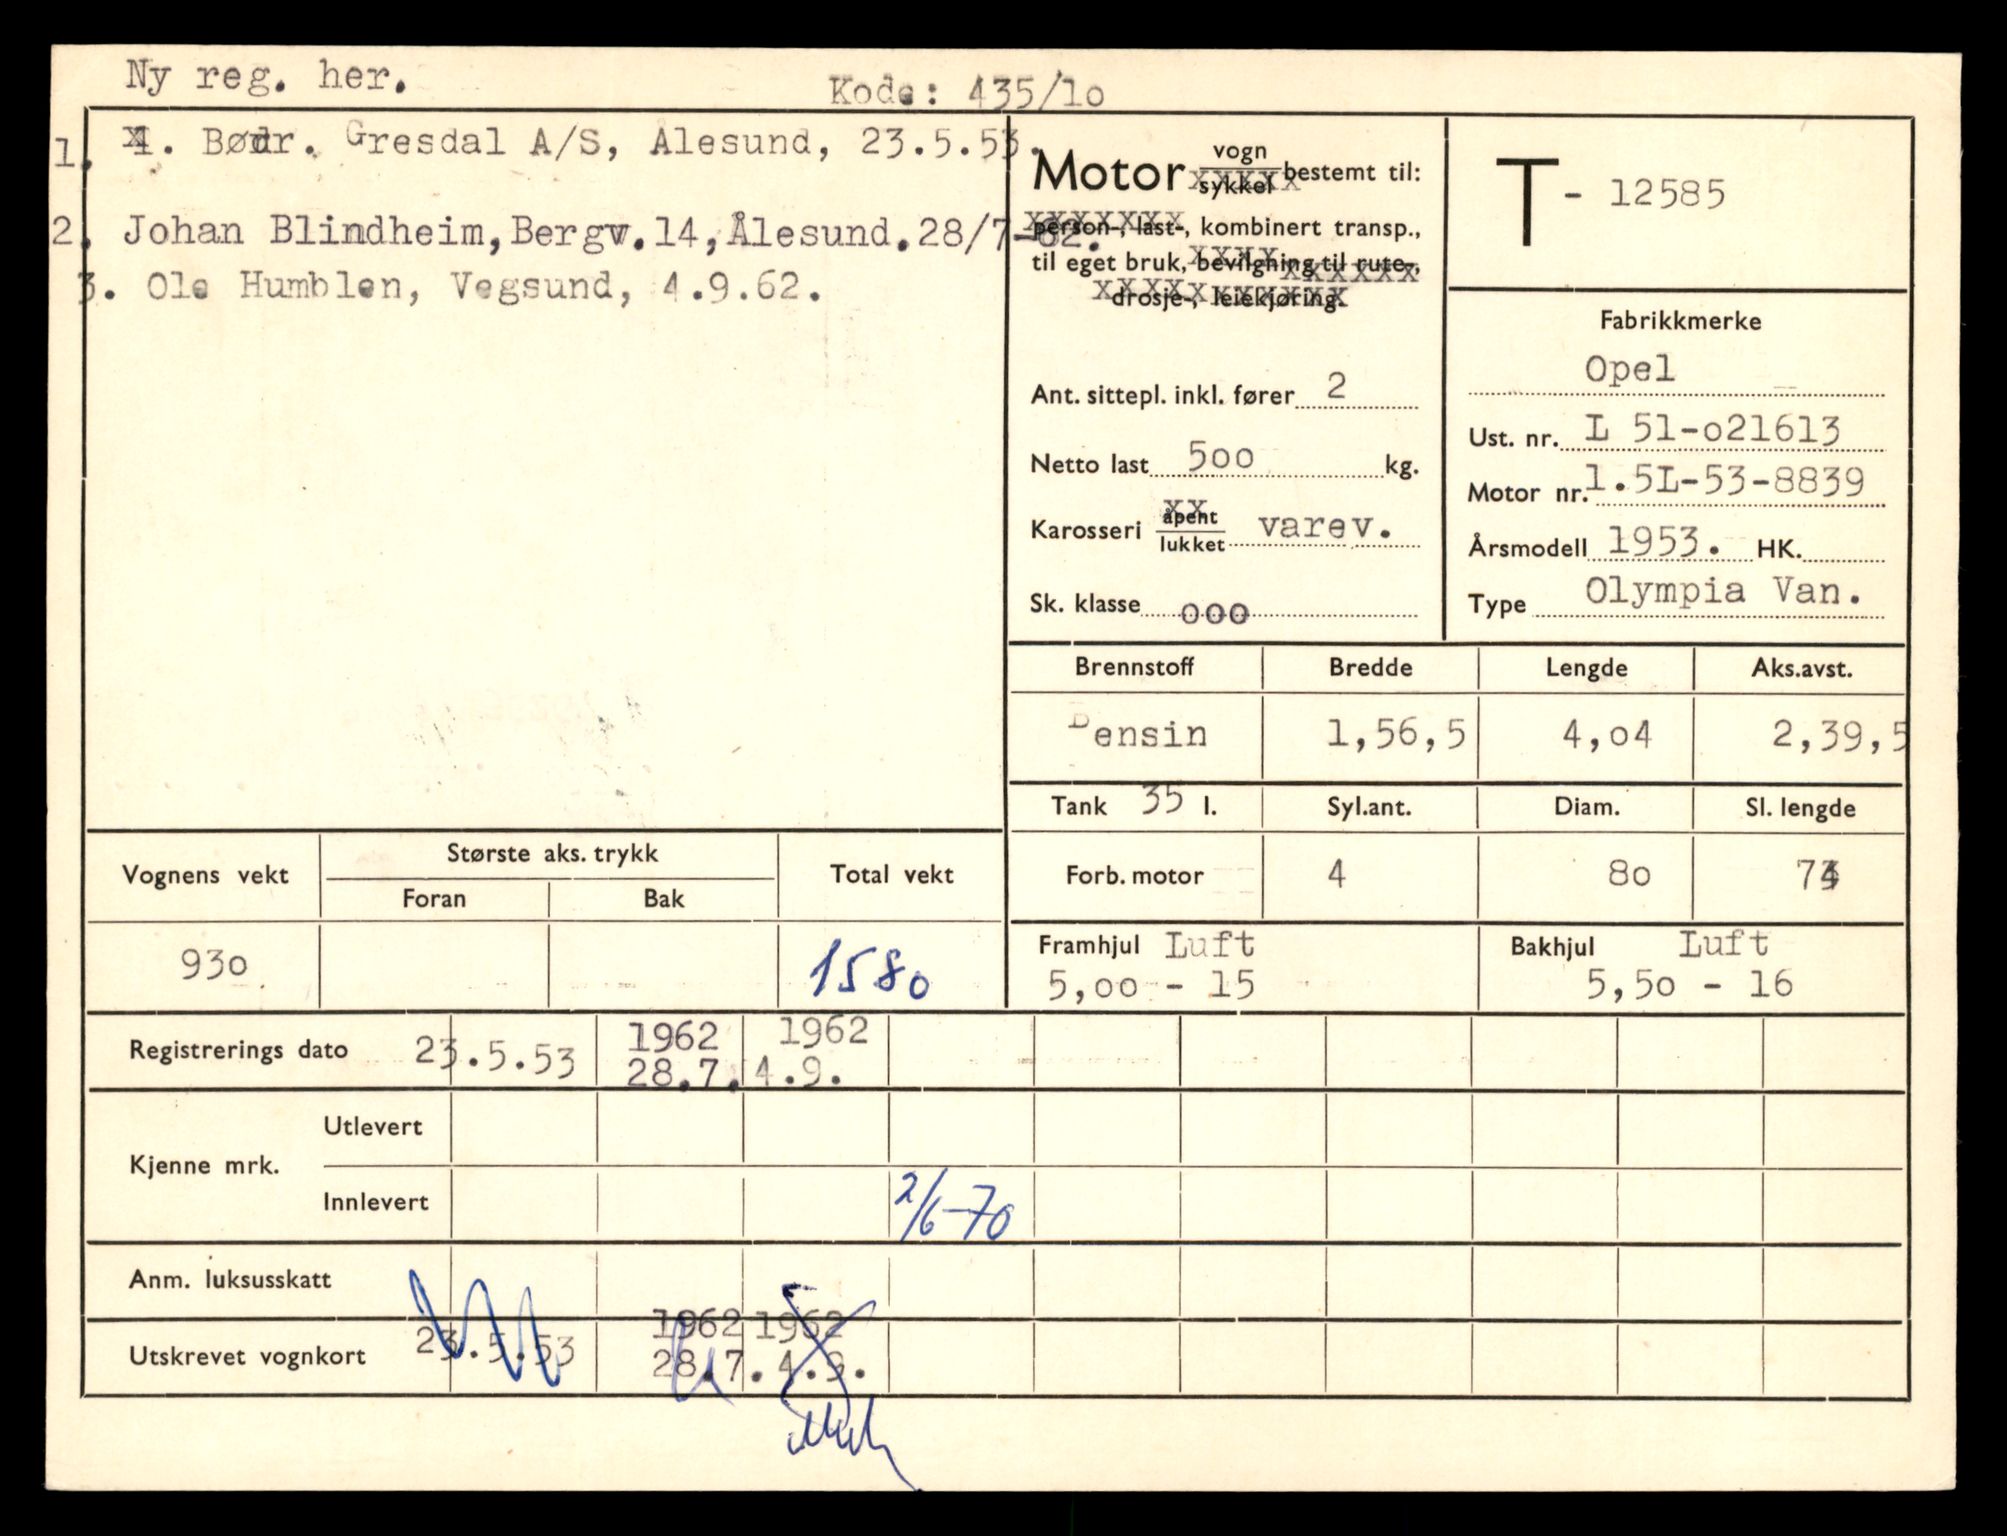 Ny reg. her.
Kode: 435/lo
1. Brødr. Gresdal A/S, Ålesund, 23.5.53.
2. Johan Blindheim, Bergv.14, Ålesund. 28/7-62.
3. Ole Humblen, Vegsund, 4.9.62.
Motor vogn sykkel bestemt til:
person-, last-, kombinert transp.,
til eget bruk, bevilgning til rute-,
drosje-, leiekjøring.
Ant. sittepl. inkl. fører 2
Netto last 5oo kg.
Karosseri åpent lukket varev.
Sk. klasse ooo
T - 12585
Fabrikkmerke
Opel
Ust. nr. L 51-o21613
Motor nr. 1.5L-53-8839
Årsmodell 1953. HK.
Type Olympia Van.
Brennstoff Bredde Lengde Aks.avst.
Bensin 1,56,5 4,o4 2,39,5
Tank 35 l. Syl.ant. Diam. Sl. lengde
Forb. motor 4 8o 74
Framhjul Luft
5,oo - 15
Bakhjul Luft
5,5o - 16
Vognens vekt Største aks. trykk Total vekt
Foran Bak
93o 1580
Registrerings dato 23.5.53 1962 28.7. 1962 4.9.
Kjenne mrk.
Utlevert
Innlevert 2/6-70
Anm. luksusskatt
Utskrevet vognkort 23.5.53 1962 28.7. 1962 4.9.